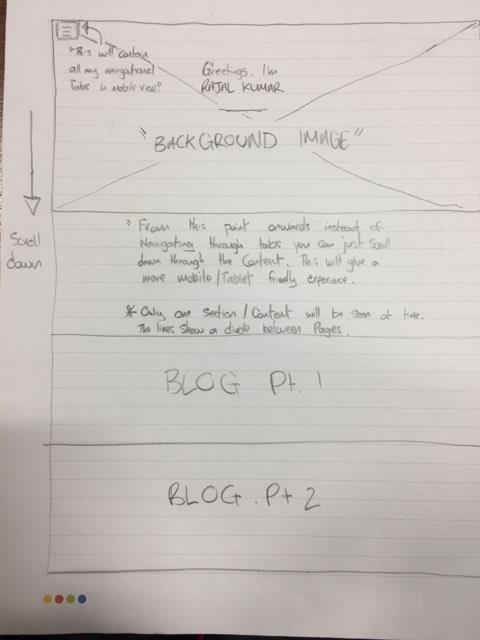 "This will contain
all my navigational
Tabs in Mobile view"
Greetings, I'm
RAJAL KUMAR
"BACKGROUND IMAGE"
Scroll
down
" From this point onwards instead of
Navigating through tabs you can just scroll
down through the Content. This will give a
more mobile/Tablet friendly experience.
* Only one section/Content will be seen at time.
The lines show a divide between Pages.
BLOG Pt. 1
BLOG. Pt 2